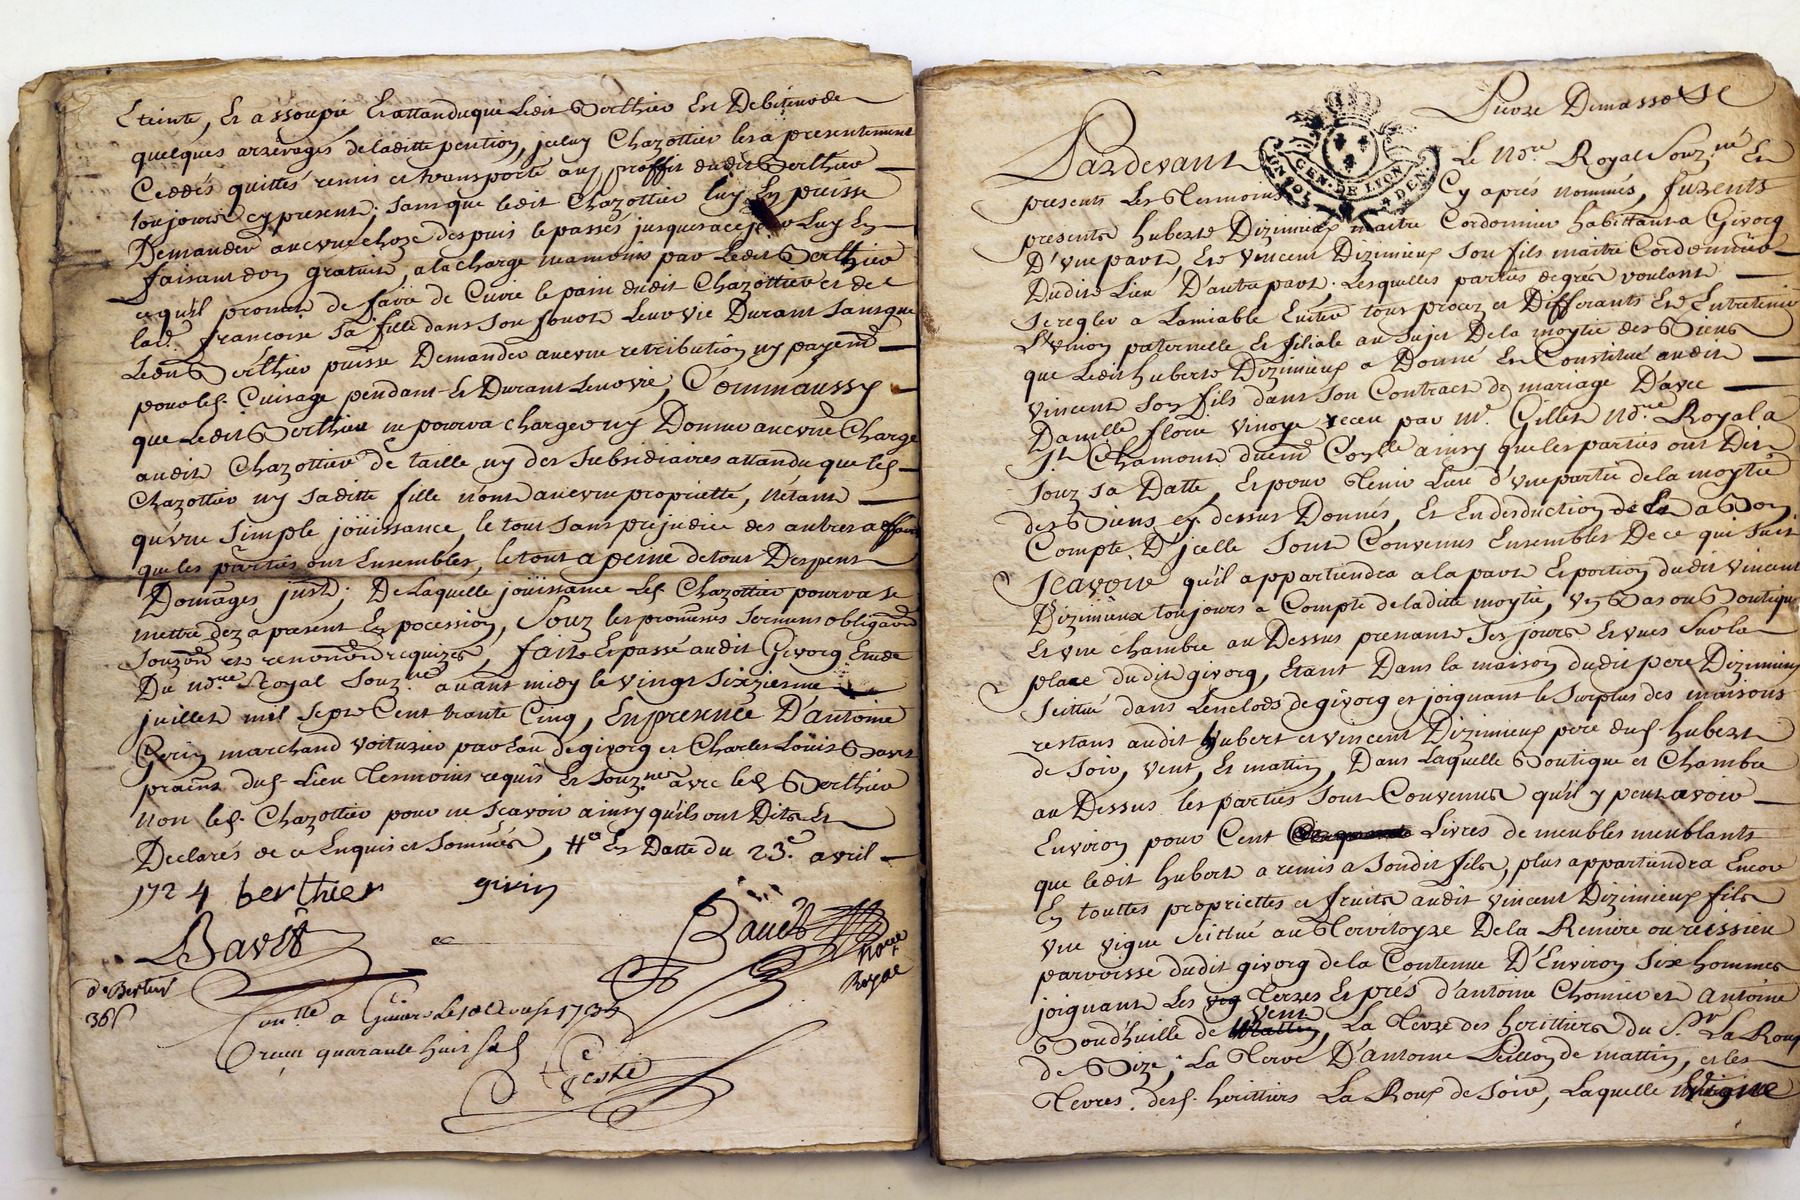 Eteinte, Et assoupie Et attandu que Ledit Berthier Est Debiteur de
quelques arrerages de laditte pention, jceluy Chazottier les a presentement
Ceddés quittés remis et transporté au proffit dudit Berthier
toujours cy present, sans que ledit Chazottier luy En puisse
Demander aucune choze despuis le passés jusques a ce jour Luy En
faisant don gratuit, a la charge neamoins par Ledit Berthier
ce qu'il promet de faire de Cuire le pain dudit Chazottier et de
lad. francoise Sa fille dans Son fourt Leur vie Durant Sans que
Ledit Berthier puisse Demander aucune retribution ny payemt
pour les. Cuisage pendant Et Durant Leur vie, Comm'aussy
que Ledit Berthier ne pourra charger ny Donner aucune Charge
audit Chazottier de taille ny des Subsidiaires attandu que les.
Chazottier ny Saditte fille n'ont aucune proprietté, N'étant
qu'une Simple joüissance, le tout sans prejudice des autres affaires
que les parties ont Ensembles, le tout a peine de tous Despens
Domages jnsts; De Laquelle joüissance Led. Chazottier pourra se
mettre dez a present En pocession, Souz les promesses Serments obligaons
Souzons et renonons requizes, fait Et passé audit Givorg Etude
Du nore Royal Souz.né avant midy le vingt Sixzieme
juillet mil Sept Cent trante Cinq, En presence D'antoine
Gerin marchand voiturier par Eau de givorg et Charles Loüis Bavet
pratn duf. Lieu Tesmoins requis Et Souz.nés avec led Berthier
non led. Chazottier pour ne Scavoir ainsy qu'ils ont Dit Et
Declarés de ce Enquis et Sommés, Et Datte du 23.e avril
1724 berthier girin
Bavet Bauet nore
Royal
de Bertier
36s
Conttle a Givors Le 1735
Receu quarante huit sols
Pierre Demasso
Pardevant Le Nore Royal Souz.né Et
GEN. DE LYON
presents Les Tesmoins Cy aprés nommés, furents
presents huberts Dizimieux maitre Cordonnier habittant a Givorg
D'une part, Et Vincent Dizimieux Son fils maitre Cordonnier
Dudit Lieu D'autre part. Lesquelles parties de gres voulant
Se regler a Lamiable Eviter tous procez et Differants Et Entretenir
L'union paternelle Et filiale au Sujet De la moytié des Biens
que Ledit huberts Dizimieux a Donné Et Constitué audit
Vincent Son fils dans Son Contract de mariage D'avec
Damlle florie Vinoye receu par Mr. Gillet nore Royal a
St. Chamont duemt Conlle ainsy que les parties ont Dit
Souz Sa Datte, Et pour Tenir Lieu d'une partie de la moytié
des Biens cy dessus Donnés, Et En desduction de Et a Bon
Compte D'jcelle Sont Convenus Ensembles De ce qui Suit
Scavoir qu'il appartiendra a la part Et portion dudit Vincent
Dizimieux toujours a Compte de laditte moytié, un Bas ou Boutique
Et une chambre au Dessus prenants Ses jours Et vues Sur la
place dudit givorg, Etant Dans la maison dudit pere Dizimieux
Scittué dans L'enclos de givorg et joignant le Surplus des maisons
restans audit hubert et vincent Dizimieux pere duf. hubert
de Soir, vent, Et mattin, Dans Laquelle Boutique et Chambre
au Dessus les parties Sont Convenus qu'il y peut avoir
Environ pour Cent Livres de meubles meublants
que ledit hubert a remis a Sondit fils, plus appartiendra Encor
En touttes propriettes et fruits audit vincent Dizimieux fils
une vigne Scittué au Territoyre De la Reniere ou reissieu
parroisse dudit givorg de la Contenue D'Environ Six hommes
joignant Les Terres Et prés d'antoine Chomier et Antoine
Bondhuille de vent, La Terre des heritiers du Sr. La Roux
de Bize; La Terre D'antoine Peillon de mattin, et les
Terres. desf. herittiers La Roux de Soir, Laquelle Vigne